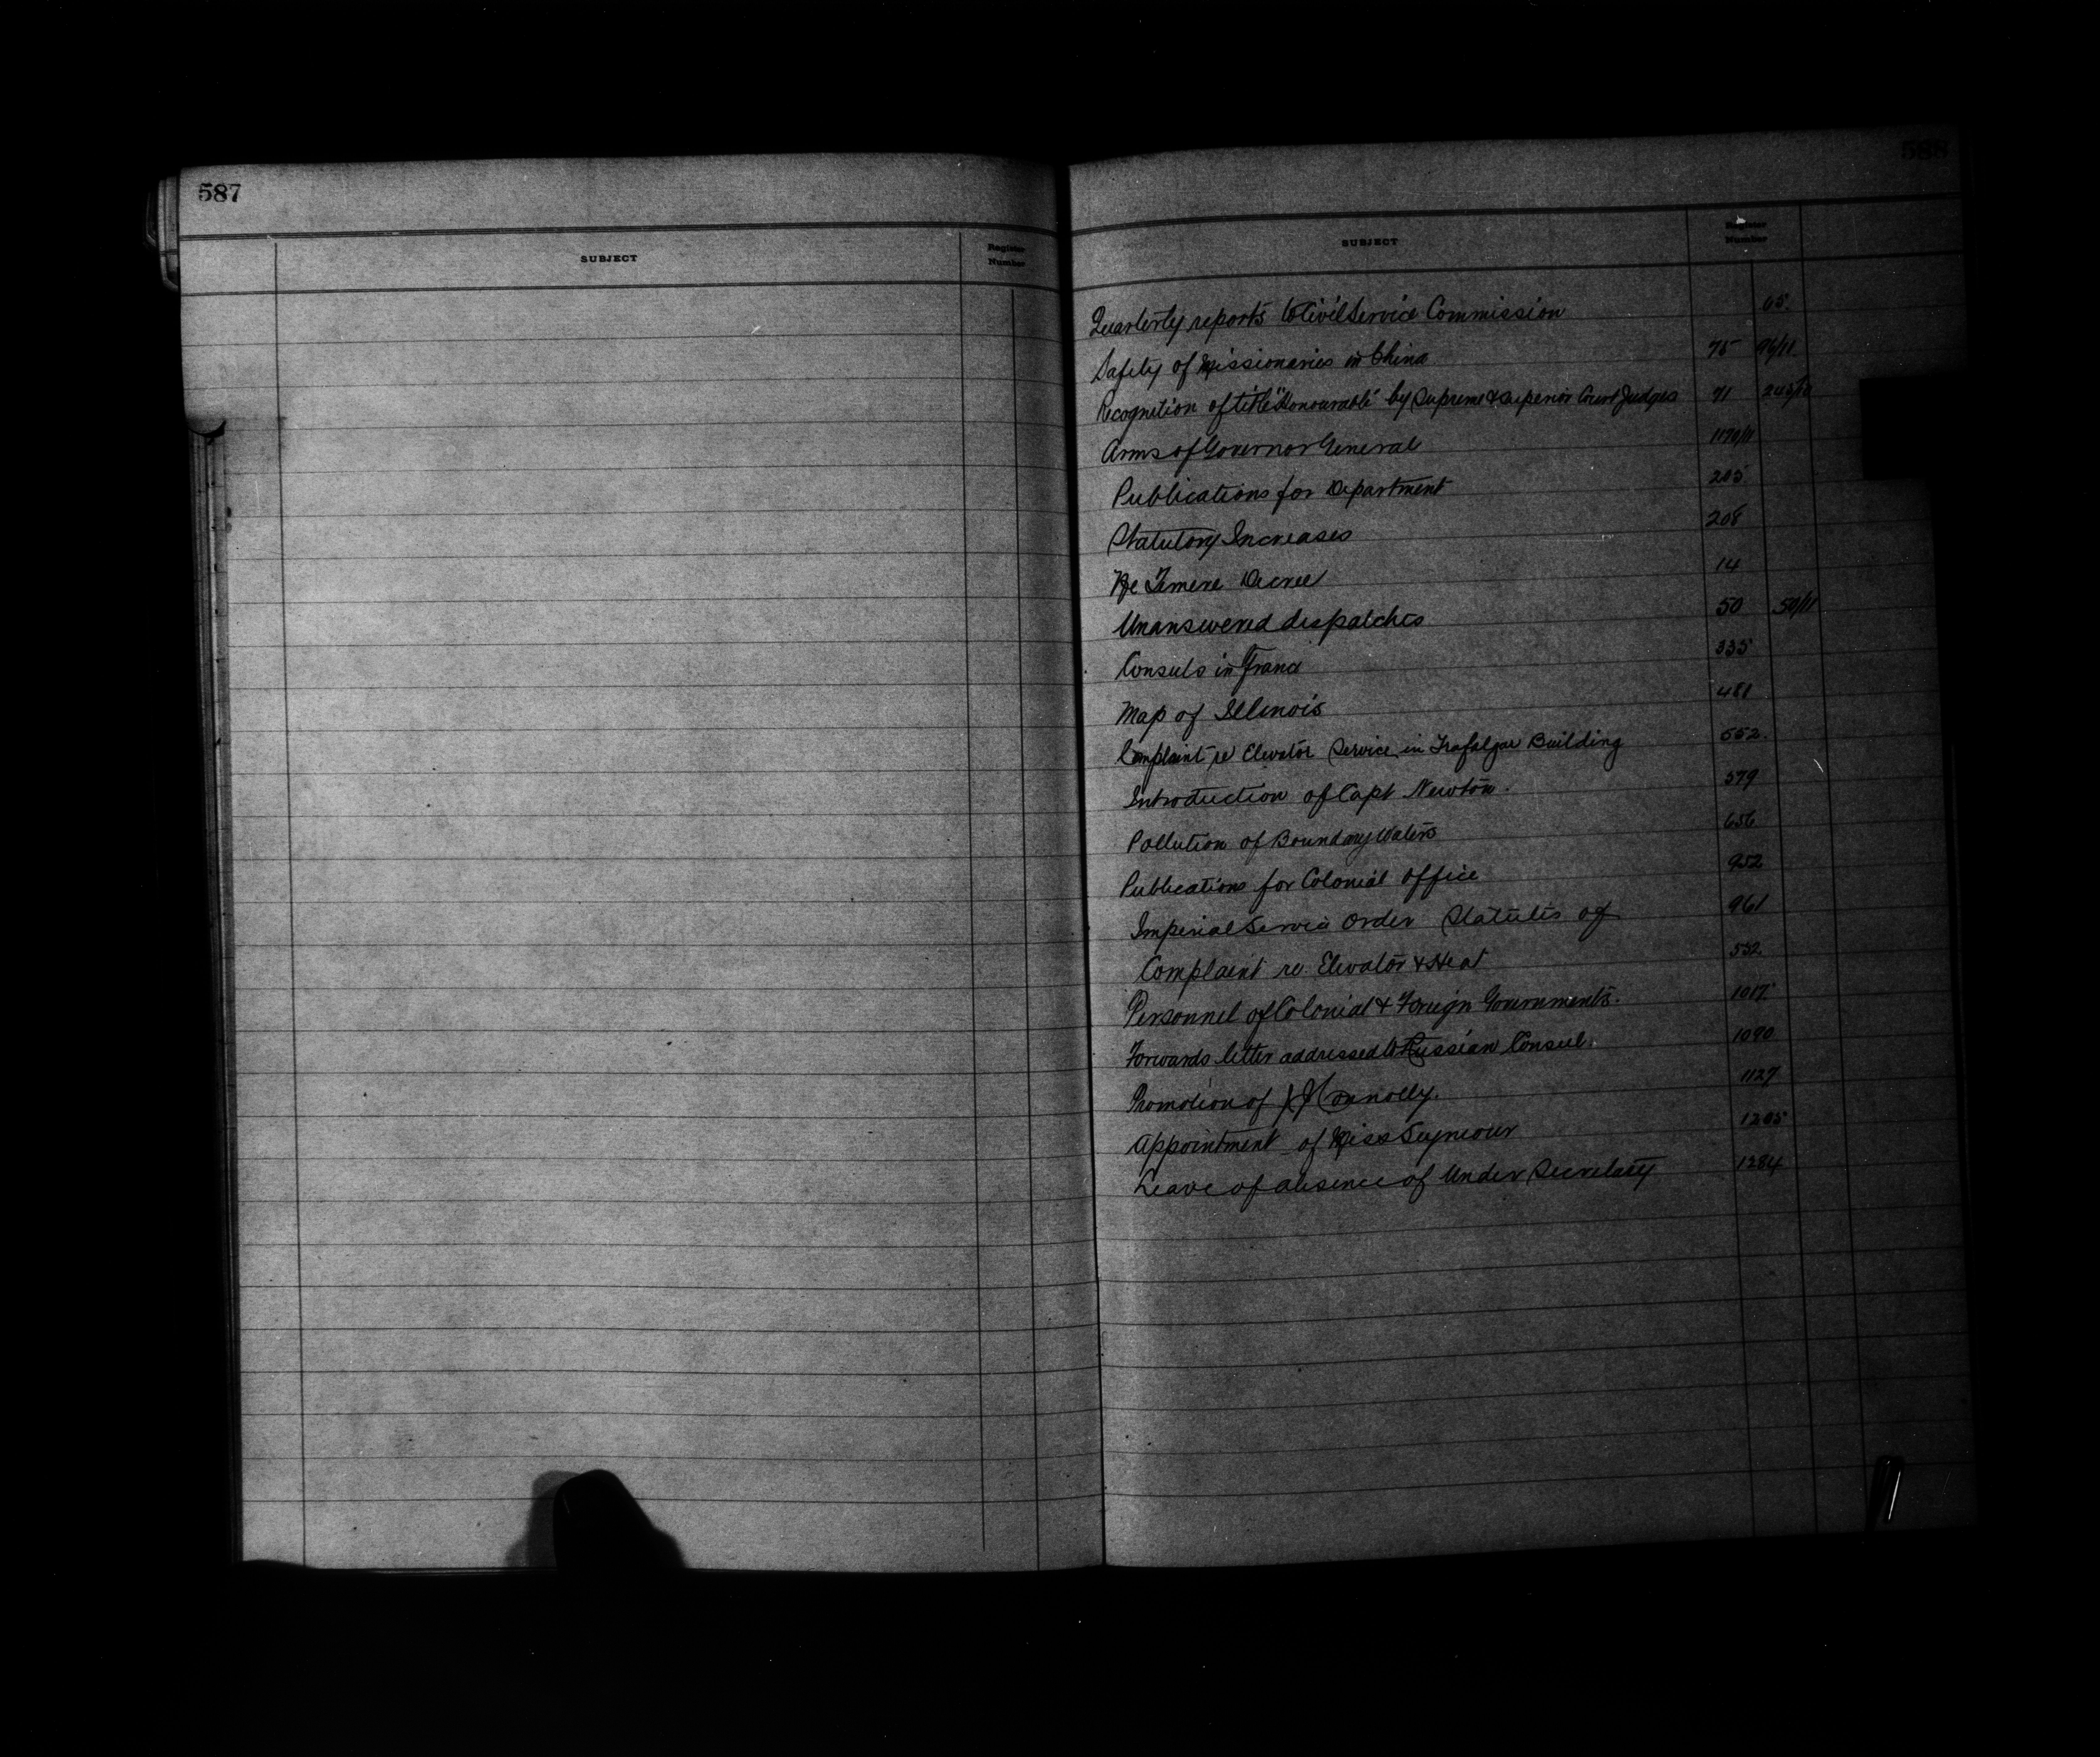 587
SUBJECT
Register Number
588
SUBJECT
Register Number
Quarterly reports to Civil Service Commission 65.
Safety of Missionaries in China 75 96/11
Recognition of title "Honourable" by Supreme & Superior Court Judges 71
Arms of Governor General 1170/11
Publications for Department 205
Statutory Increases 208
Ne Temere Decree 14
Unanswered dispatches 50 50/11
Consuls in France 335
Map of Illinois 481
Complaint re Elevator Service in Trafalgar Building 552.
Introduction of Capt Newton. 579
Pollution of Boundary Waters 656
Publications for Colonial Office 952
Imperial Service Order Statutes of 961
Complaint re. Elevator & Heat 552
Personnel of Colonial & Foreign Governments. 1017
Forwards letter addressed to Russian Consul. 1090
Promotion of Connolly. 1127
Appointment of Miss Seymour 1205
Leave of absence of Under Secretary 1284